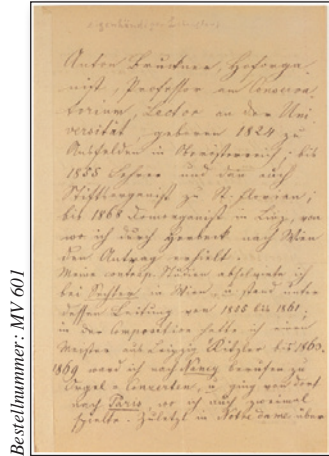 eigenhändiger Lebenslauf
Anton Bruckner, Hoforga-
nist, Professor am Conserva-
torium, Lector an der Uni-
versität, geboren 1824 zu
Ansfelden in Oberösterreich; bis
1855 Lehrer und dann auch
Stiftsorganist zu St. Florian;
bis 1868 Domorganist in Linz, von
wo ich durch Herbeck nach Wien
den Antrag erhielt.
Meine contrap. Studien absolvirte ich
bei Sechter in Wien, u stand unter
dessen Leitung von 1855 bis 1861;
in der Composition hatte ich einen
Meister aus Leipzig Kitzler bis 1863.
1869 ward ich nach Nancy berufen zu
Orgel = Concerten, u ging von dort
nach Paris, wo ich auch zweimal
spielte. Zuletzt in Notre dame über
Bestellnummer: MV 601